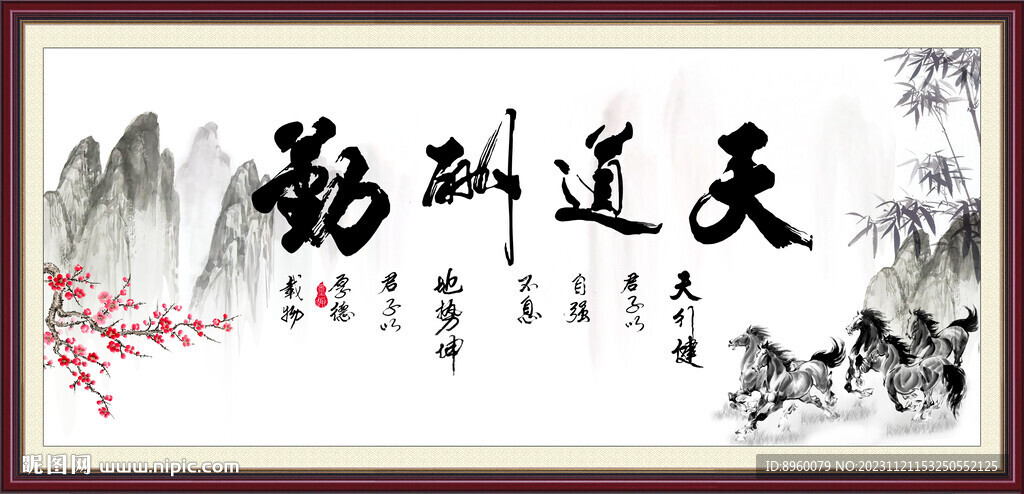 天道酬勤
天行健
君子以
自强
不息
地势坤
君子以
厚德
载物
昵图网 www.nipic.com
ID:8960079 NO:20231121153250552125